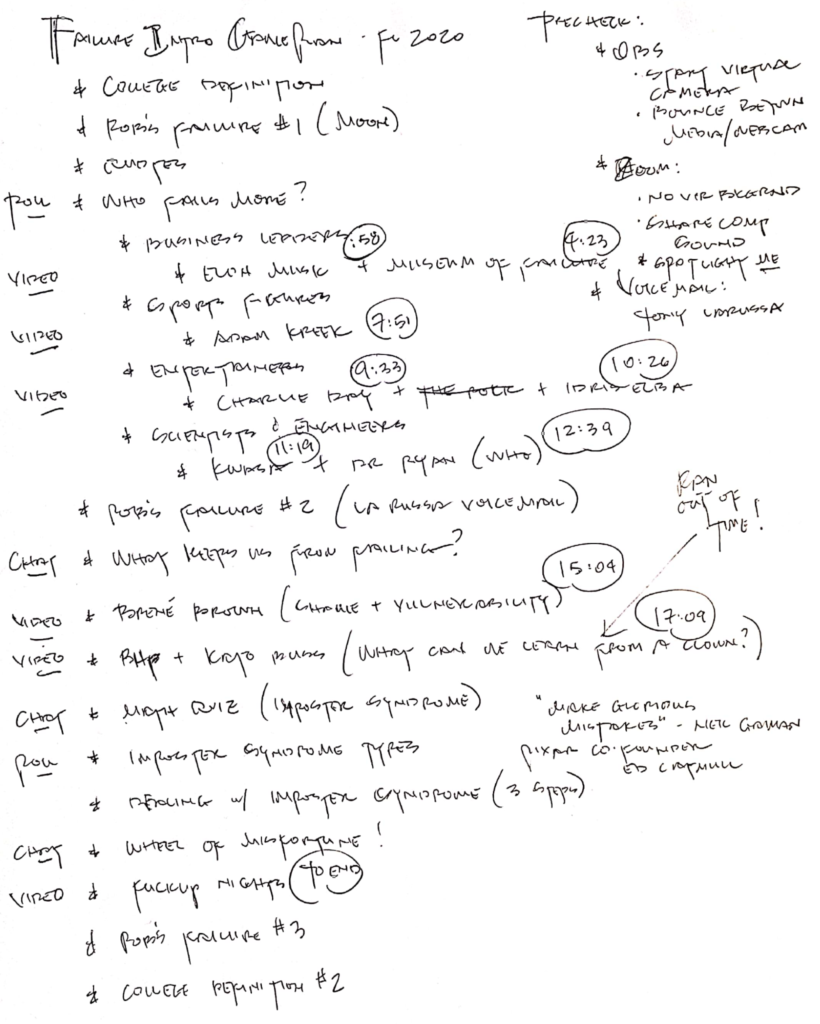 FAILURE INTRO GAMEPLAN · FA 2020
* COLLEGE DEFINITION
* ROB'S FAILURE #1 (MOON)
* QUOTES
POLL * WHO FAILS MORE?
* BUSINESS LEADERS :58 4:23
VIDEO * ELON MUSK + MUSEUM OF FAILURE
* SPORTS FIGURES
VIDEO * ADAM KREEK 7:51
* ENTERTAINERS 9:33 10:26
VIDEO * CHARLIE DAY + THE ROCK + IDRIS ELBA
* SCIENTISTS & ENGINEERS
11:19 12:39
* KWASA + DR RYAN (WHO)
* ROB'S FAILURE #2 (LA RUSSA VOICEMAIL)
CHAT * WHAT KEEPS US FROM FAILING?
15:04
VIDEO * BRENÉ BROWN (SHAME + VULNERABILITY)
17:09
VIDEO * BHP + KAJO BUBS (WHAT CAN WE LEARN FROM A CLOWN?)
CHAT * MATH QUIZ (IMPOSTER SYNDROME)
POLL * IMPOSTER SYNDROME TYPES
* DEALING W/ IMPOSTER SYNDROME (3 STEPS)
CHAT * WHEEL OF MISFORTUNE!
VIDEO * FUCKUP NIGHTS TO END
* ROB'S FAILURE #3
* COLLEGE DEFINITION #2
PRECHECK:
* OBS
· START VIRTUAL
CAMERA
· BOUNCE BETWN
MEDIA/WEBCAM
* ZOOM:
· NO VIR BKGRND
· SHARE COMP
SOUND
* SPOTLIGHT ME
* VOICEMAIL:
TONY LARUSSA
RAN
OUT OF
TIME!
"MAKE GLORIOUS
MISTAKES" - NEIL GAIMAN
PIXAR CO-FOUNDER
ED CATMULL